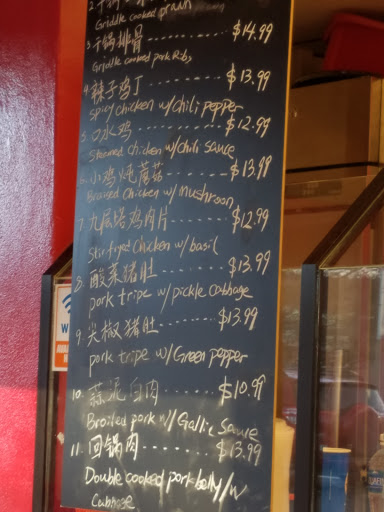 Griddle cooked prain
3. 干锅排骨 ------ $14.99
Griddle cooked pork Ribs
4. 辣子鸡丁 -------- $13.99
Spicy chicken w/chili pepper
5. 口水鸡 --------- $12.99
Steamed chicken w/chili sauce
6. 小鸡炖蘑菇 ------ $13.99
Braised Chicken w/ mushroon
7. 九层塔鸡肉片 ----- $12.99
Stirfryed Chicken w/ basil
8. 酸菜猪肚 ------ $13.99
pork tripe w/ pickle cabbage
9. 尖椒猪肚 ------ $13.99
pork tripe w/Green pepper
10. 蒜泥白肉 ------- $10.99
Broiled pork w/ Gallic Sauce
11. 回锅肉 -------- $13.99
Double cooked pork belly/w
Cabbage